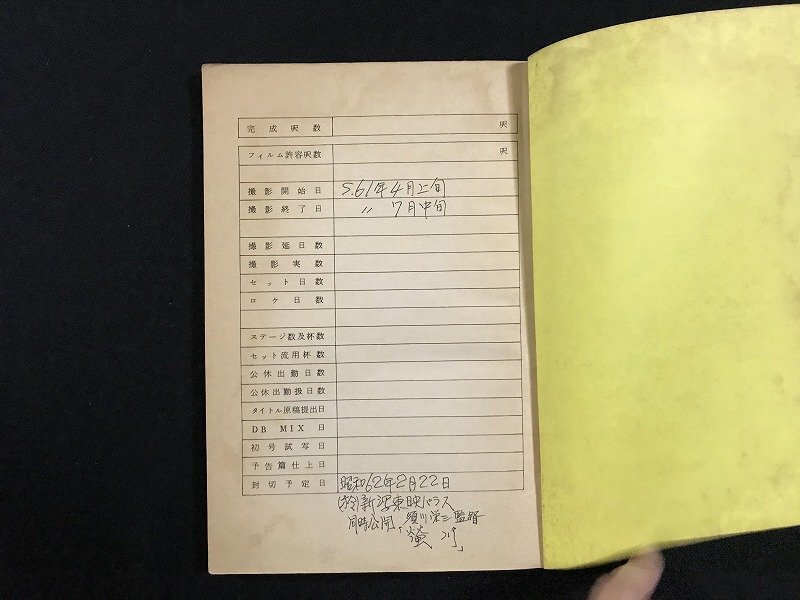 完成呎数 呎
フィルム許容呎数 呎
撮影開始日 S.61年4月上旬
撮影終了日 〃 7月中旬
撮影延日数
撮影実数
セット日数
ロケ日数
ステージ数及杯数
セット流用杯数
公休出動日数
公休出動扱日数
タイトル原稿提出日
DB MIX 日
初号試写日
予告篇仕上日
封切予定日 昭和62年2月22日
新潟東映パラス
同時公開、須川栄三監督
「螢川」